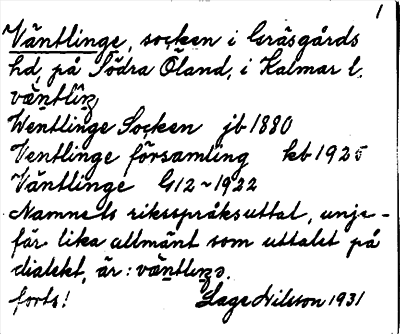 1
Väntlinge, socken i Gräsgårds
hd, på Södra Öland, i Kalmar l.
Wentlinge Socken jb 1880
Ventlinge församling kb 1925
Väntlinge G12~1922
Namnets riksspråksuttal, unge-
fär lika allmänt som uttalet på
dialekt, är:
forts! Lage Nilsson 1931